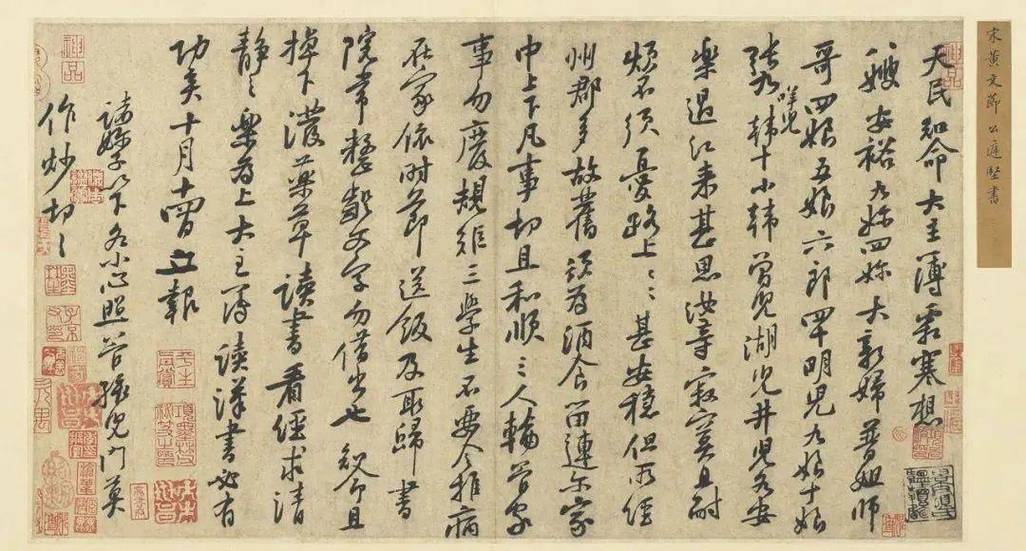 宋黃文節公庭堅書
天民知命大主簿霜寒想
八嫂安裕九妳四妳大新婦普姐師
哥四娘五娘六郎四十明兒九娘十娘
張九咩兒韓十小韓曾兒湖兒井兒各安
樂過江來甚思汝等寂寞且耐
煩不須憂路上〻〻甚安穩但所經
州郡多故舊須爲酒食留連尔家
中上下凡事切且和順三人輪管家
事勿廢規矩三學生不要令推病
在家依時節送飯及取歸書
院常整齪文字勿借出也知命且
掉下潑藥草讀書看經求清
靜之樂爲上大主簿讀漢書必有
功矣十月十一日立報
諸妳子以下各小心照管孩兒門莫
作炒切〻
神品